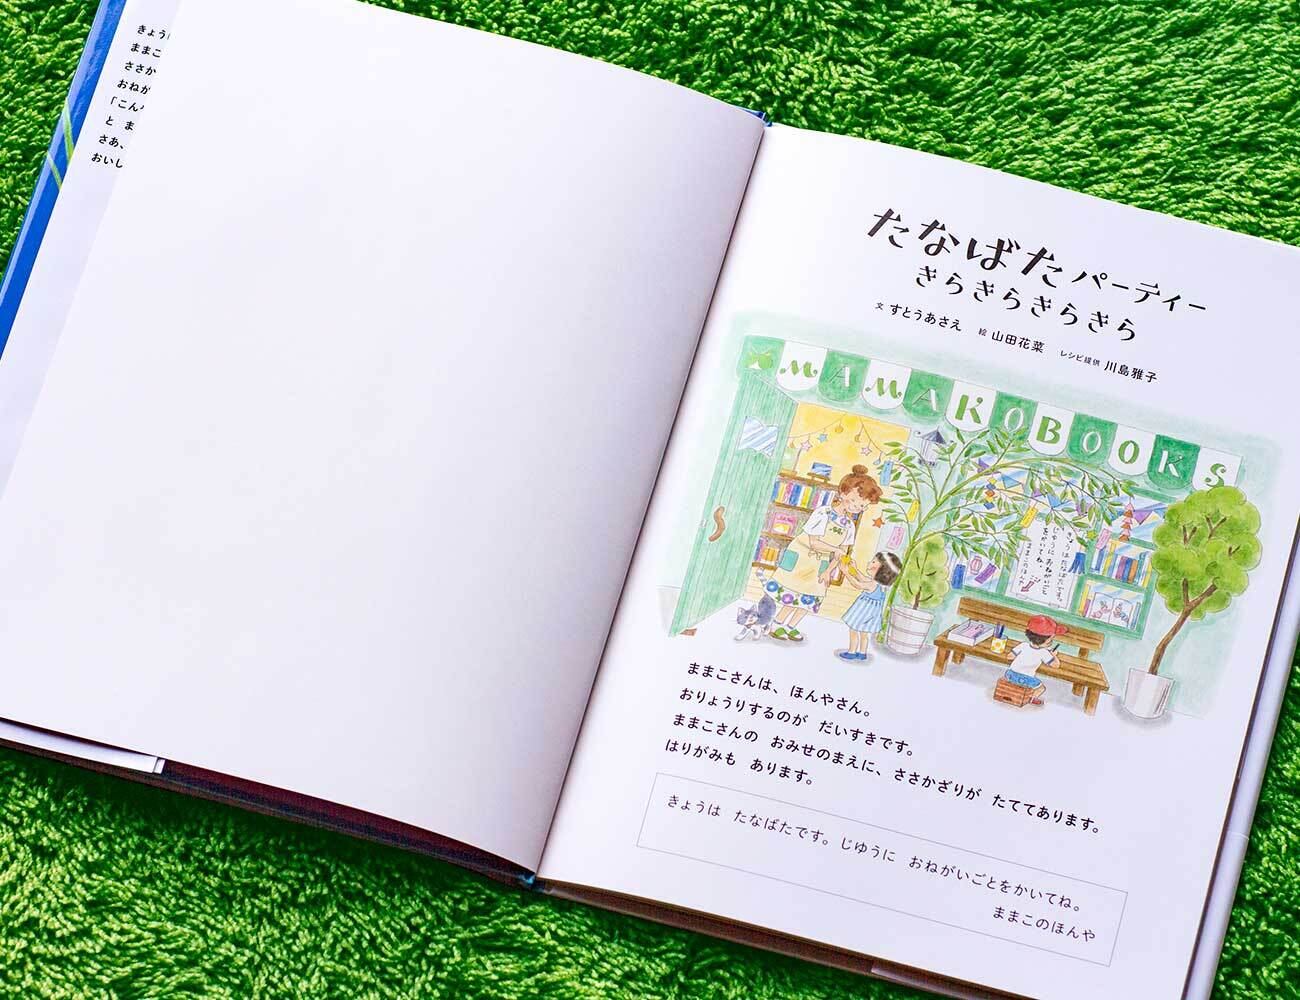 きょう
ままこ
ささか
おねが
「こん
と ま
さあ、
おいし
たなばたパーティー
きらきらきらきら
文 すとうあさえ 絵 山田花菜 レシピ提供 川島雅子
MAMAKOBOOKS
きょうはたなばたです。
じゆうに おねがいごと
をかいてね。
ままこのほんや
ままこさんは、ほんやさん。
おりょうりするのが だいすきです。
ままこさんの おみせのまえに、ささかざりが たててあります。
はりがみも あります。
きょうは たなばたです。じゆうに おねがいごとをかいてね。
ままこのほんや